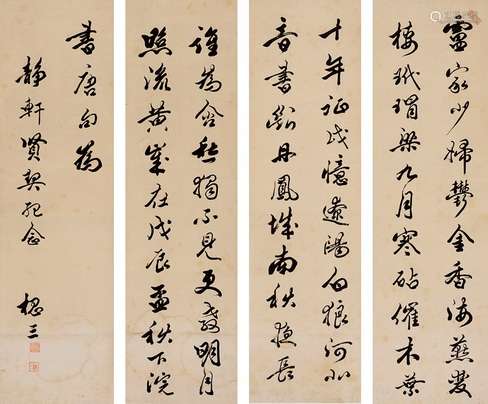 盧家少婦鬱金香海燕雙
棲玳瑁梁九月寒砧催木葉
十年征戍憶遼陽白狼河北
音書斷丹鳳城南秋夜長
誰為含愁獨不見更教明月
照流黃歲在戊辰孟秋下浣
書唐句為
靜軒賢契紀念
三